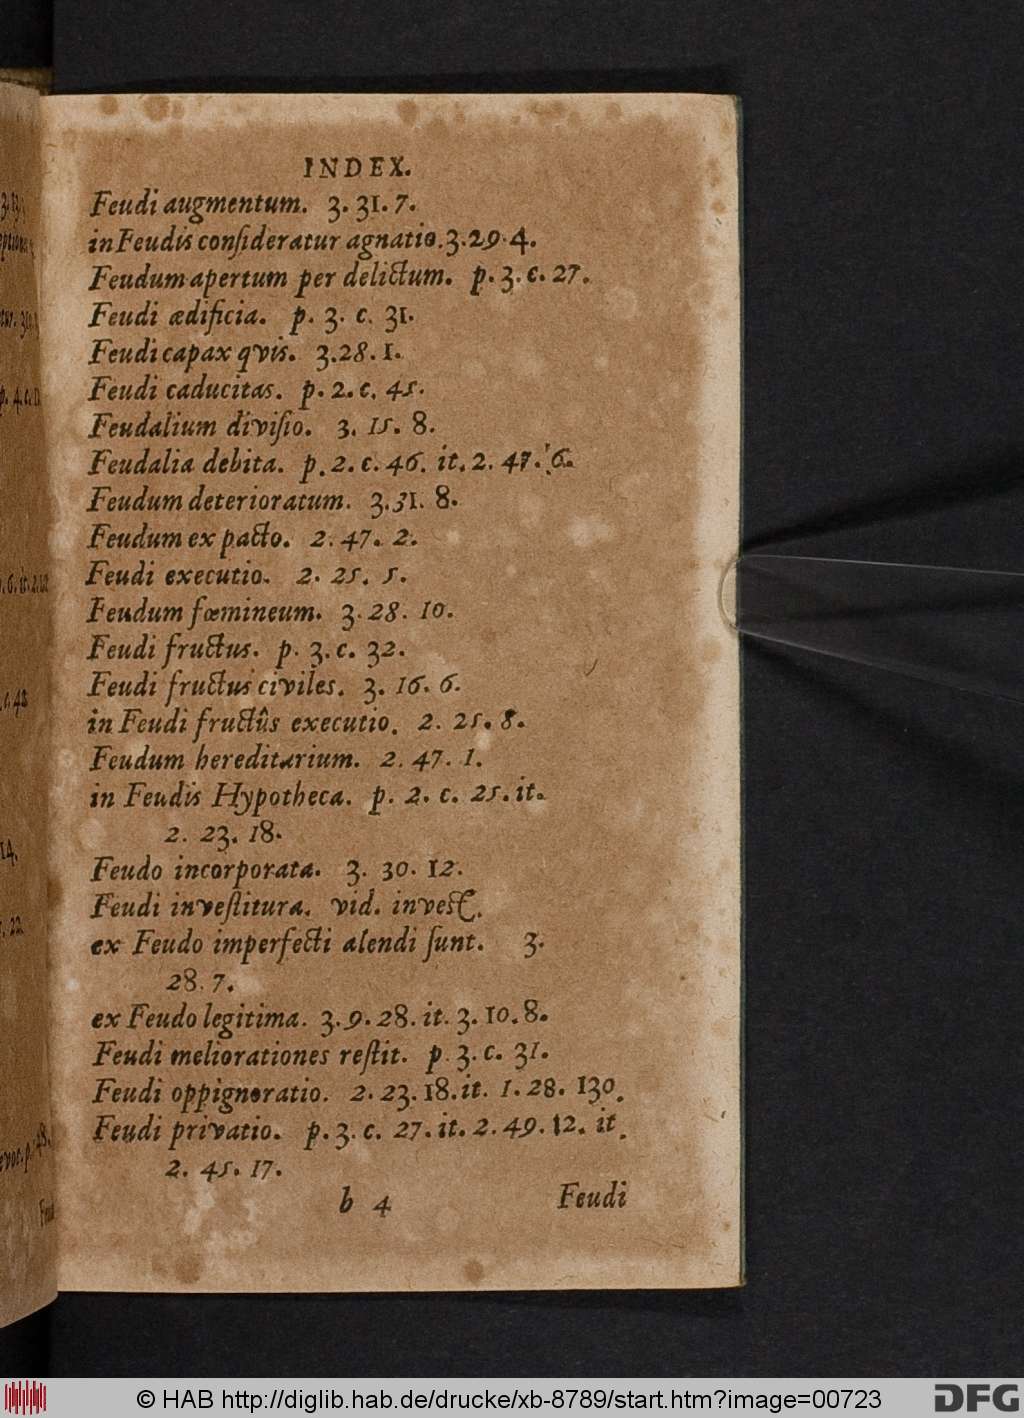 INDEX.
Feudi augmentum. 3. 31. 7.
in Feudis consideratur agnatio. 3. 29. 4.
Feudum apertum per delictum. p. 3. c. 27.
Feudi ædificia. p. 3. c. 31.
Feudi capax qvis. 3. 28. 1.
Feudi caducitas. p. 2. c. 45.
Feudalium divisio. 3. 15. 8.
Feudalia debita. p. 2. c. 46. it. 2. 47. 6.
Feudum deterioratum. 3. 31. 8.
Feudum ex pacto. 2. 47. 2.
Feudi executio. 2. 25. 5.
Feudum fœmineum. 3. 28. 10.
Feudi fructus. p. 3. c. 32.
Feudi fructus civiles. 3. 16. 6.
in Feudi fructûs executio. 2. 25. 8.
Feudum hereditarium. 2. 47. 1.
in Feudis Hypotheca. p. 2. c. 25. it.
2. 23. 18.
Feudo incorporata. 3. 30. 12.
Feudi investitura. vid. invest.
ex Feudo imperfecti alendi sunt. 3.
28. 7.
ex Feudo legitima. 3. 9. 28. it. 3. 10. 8.
Feudi meliorationes restit. p. 3. c. 31.
Feudi oppignoratio. 2. 23. 18. it. 1. 28. 130.
Feudi privatio. p. 3. c. 27. it. 2. 49. 12. it.
2. 45. 17.
b 4 Feudi
© HAB http://diglib.hab.de/drucke/xb-8789/start.htm?image=00723
DFG